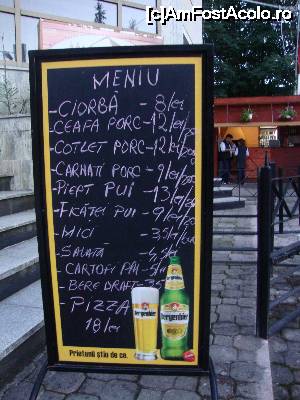 [c]AmFostAcolo.ro
MENIU
- CIORBĂ - 8 lei
- CEAFA PORC - 12 lei
- COTLET PORC - 12 lei
- CARNATI PORC - 9 lei
- PIEPT PUI - 13 lei
- FICĂȚEI PUI - 9 lei
- MICI - 3,5 lei
- SALATĂ
- CARTOFI PAI
- BERE DRAFT
- PIZZA
18 lei
Bergenbier
Bergenbier
Prietenii știu de ce.